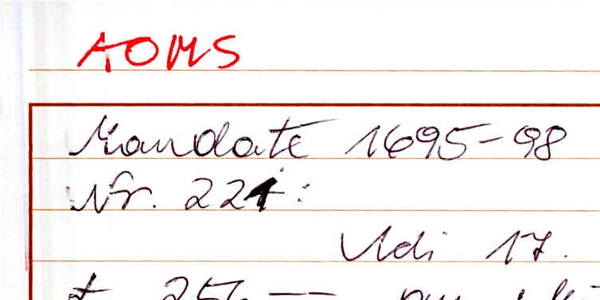 AOMS
Mandate 1695-98
Nr. 221:
Adi 17.